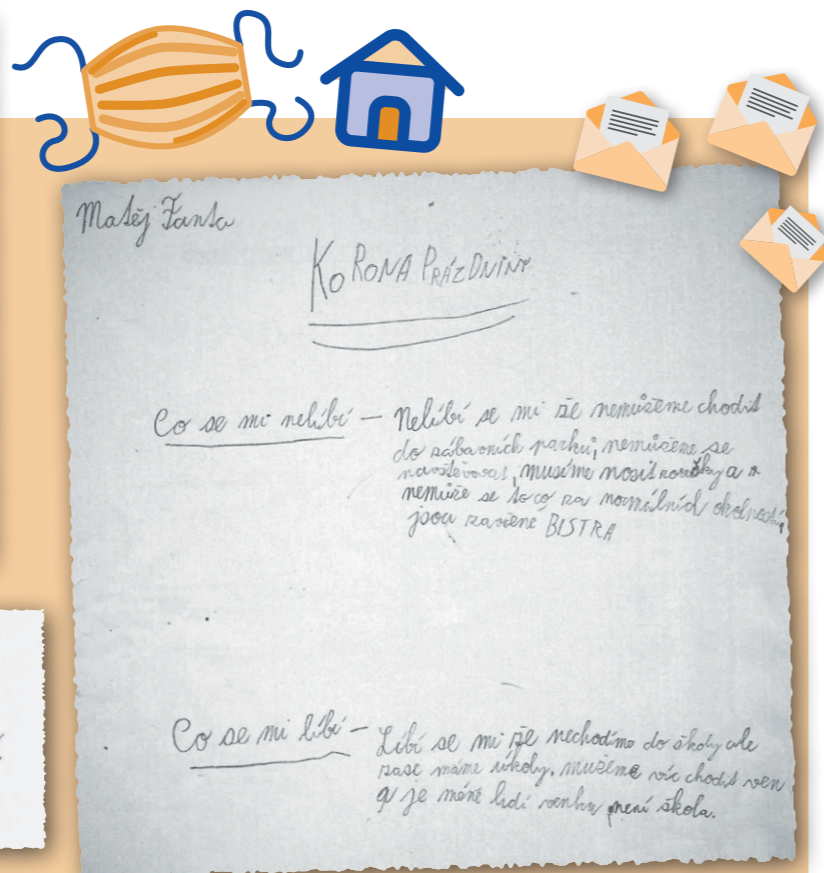 Matěj Fanta
KORONA PRÁZDNINY
Co se mi nelíbí – Nelíbí se mi že nemůžeme chodit
do zábavních parků, nemůžeme se
navštěvovat, musíme nosit roušky a
nemůže se to co za normálních okolností,
jsou zavřené BISTRA
Co se mi líbí – Líbí se mi že nechodíme do školy ale
zase máme úkoly. můžeme víc chodit ven
a je méně lidí venku není škola.